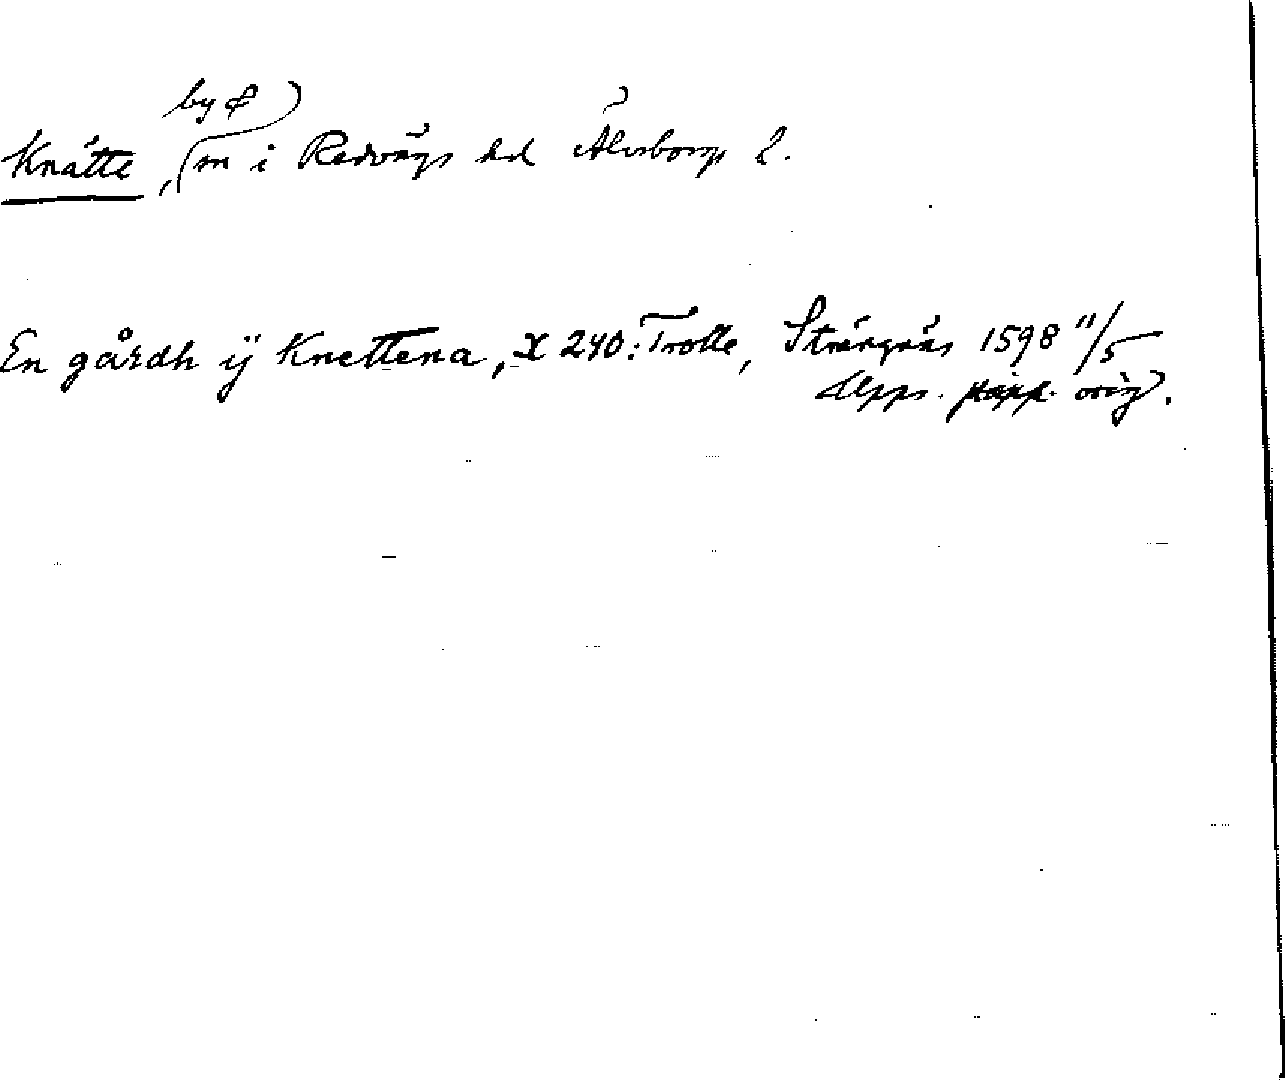 by &
Knätte, sn i Redvägs hd Älvsborgs l.
En gårdh ÿ Knettena, X 240: Trolle, Strängnäs 1598 11/5
Upps. papp. orig.